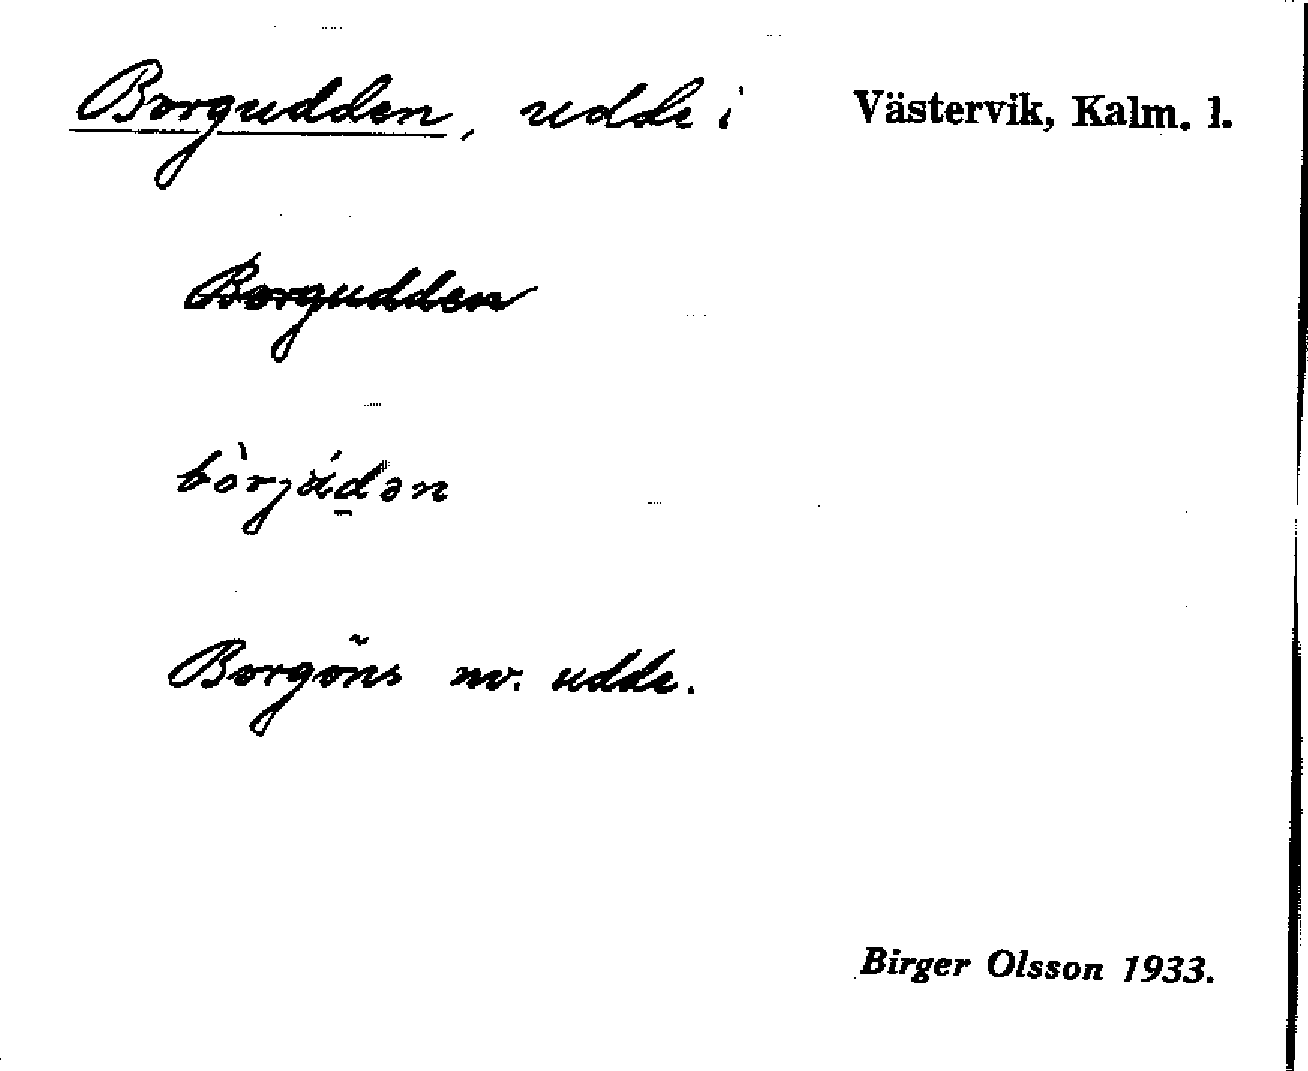 Borgudden, udde i Västervik, Kalm. l.
Borgudden
bòrjúdən
Borgöns nv. udde.
Birger Olsson 1933.